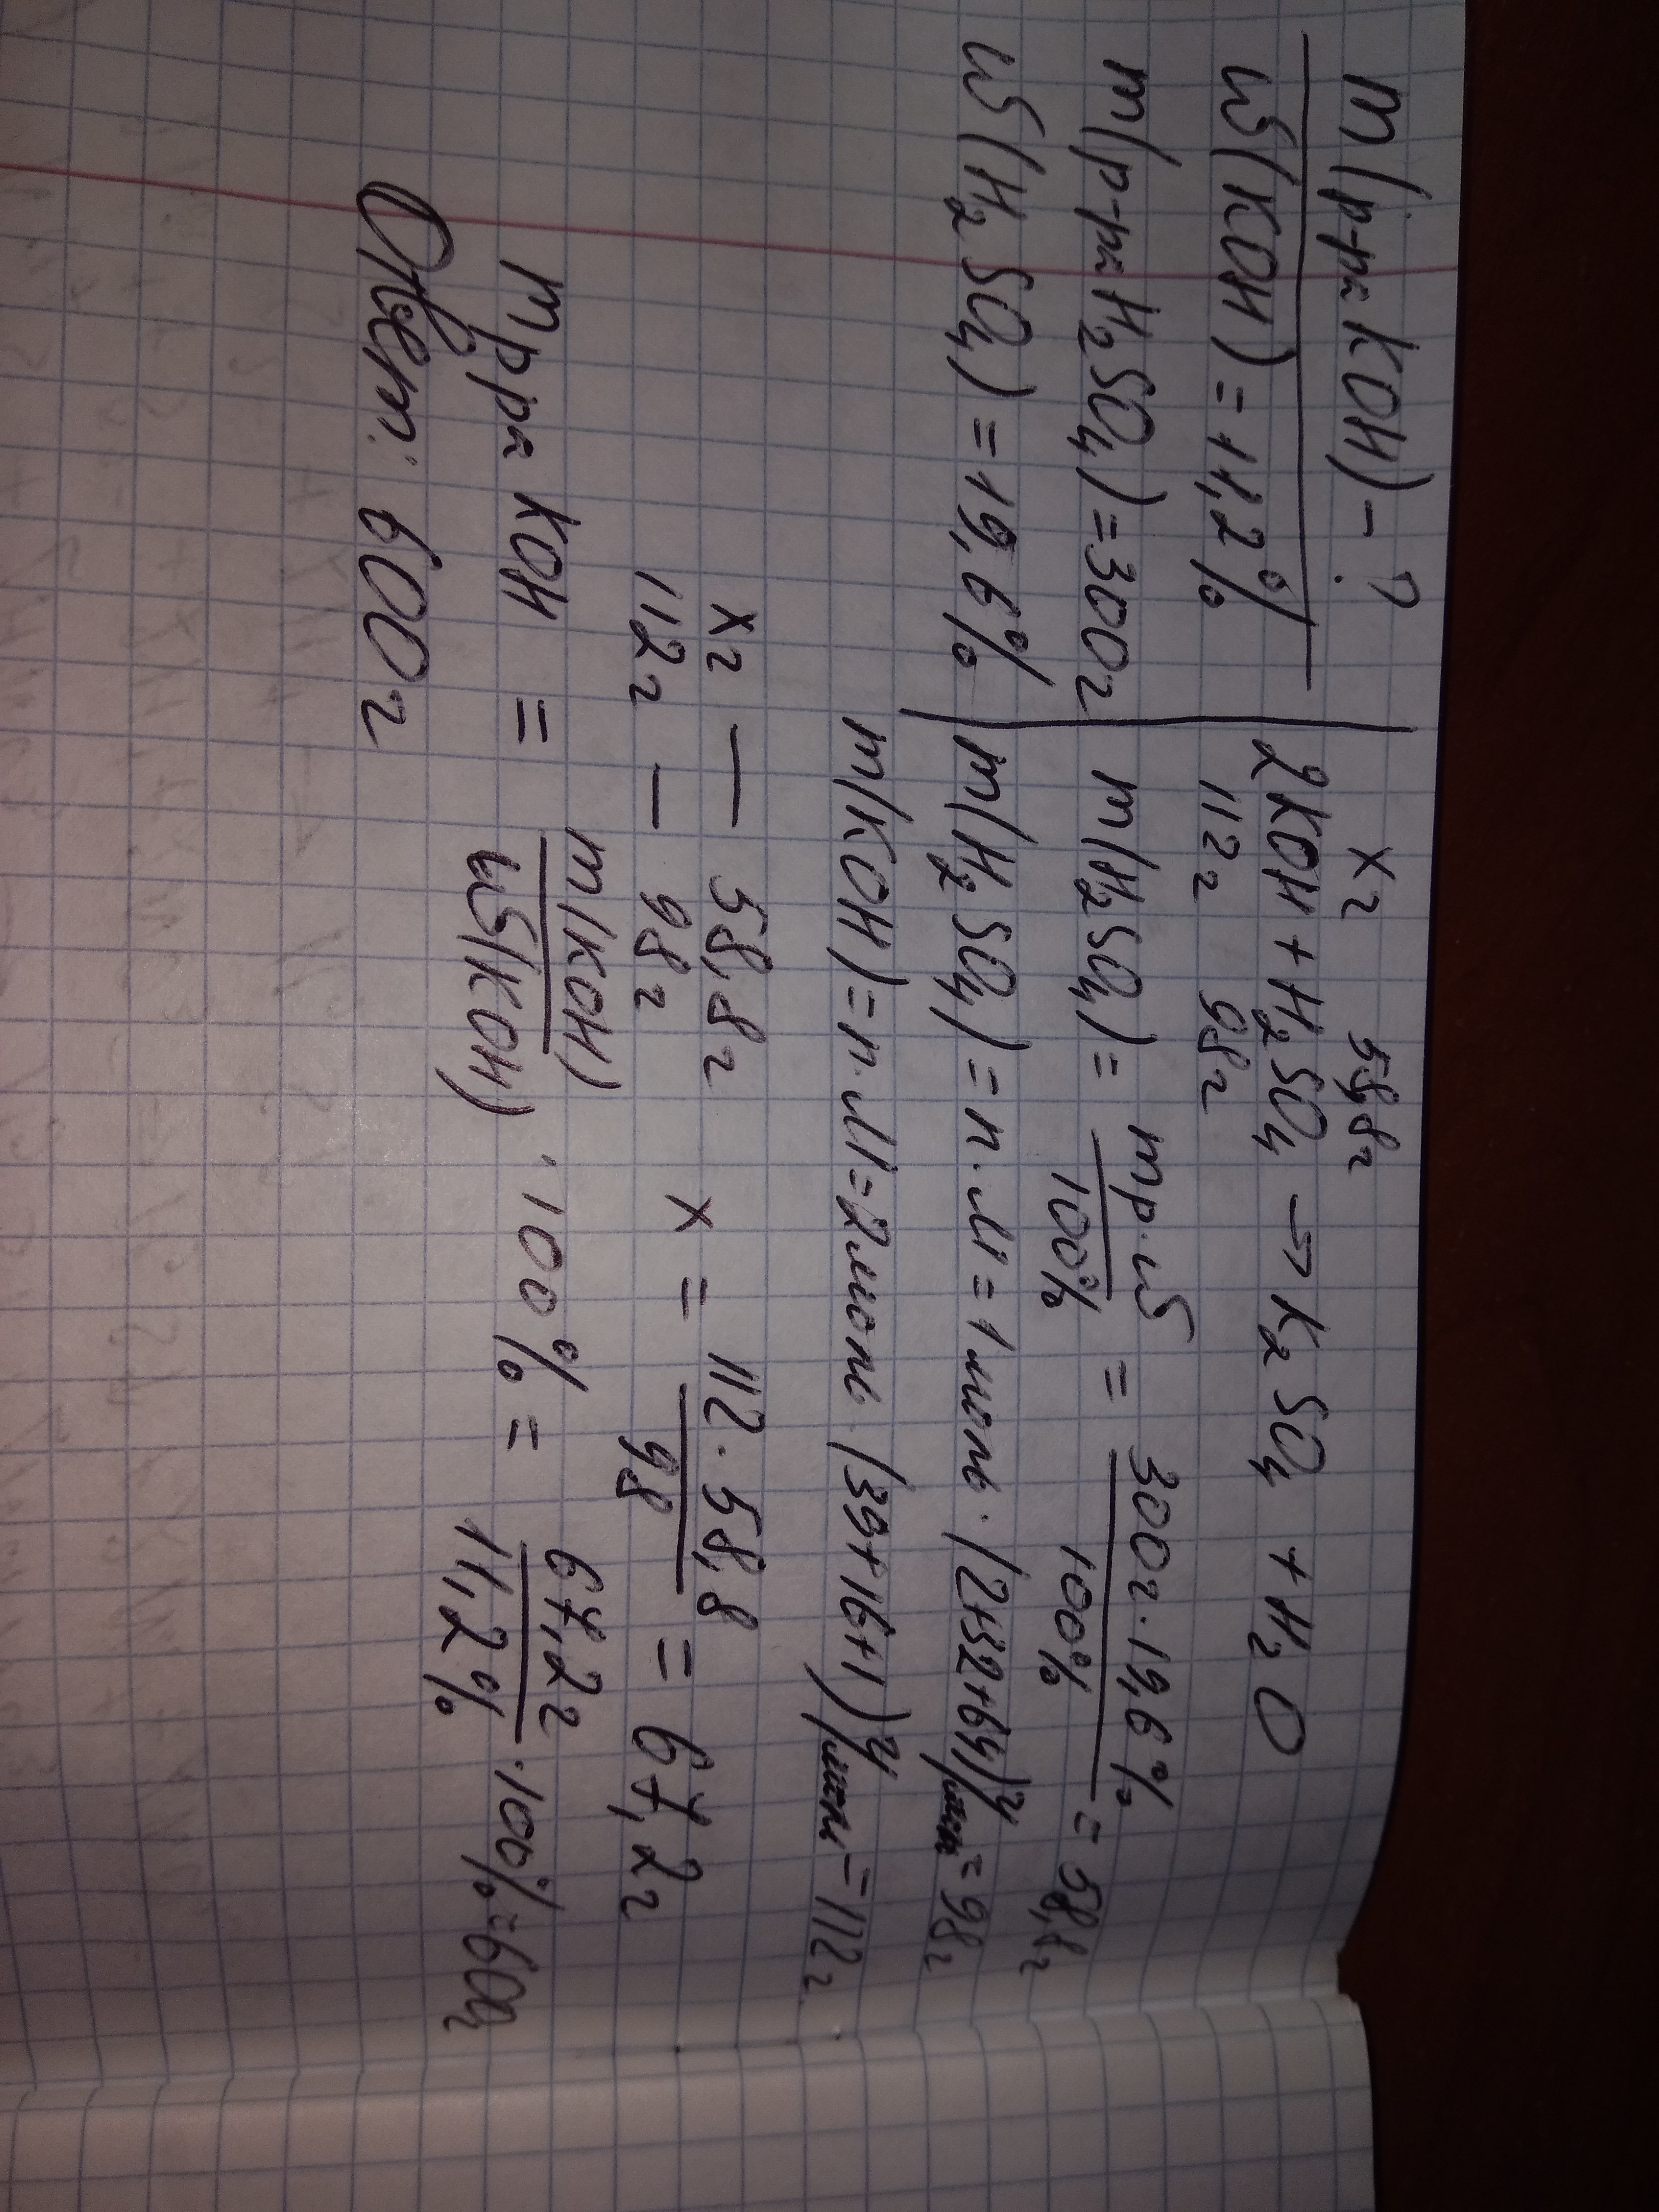 m(р-ра KOH) - ?
ω(KOH) = 11,2%
m(р-ра H₂SO₄) = 300г
ω(H₂SO₄) = 19,6%
xг 58,8г
2KOH + H₂SO₄ → K₂SO₄ + H₂O
112г 98г
m(H₂SO₄) = mр·ω/100% = 300г·19,6%/100% = 58,8г
m(H₂SO₄) = n·M = 1моль·(2+32+64)г/моль = 98г
m(KOH) = n·M = 2моль·(39+16+1)г/моль = 112г
xг — 58,8г
112г — 98г
x = 112·58,8/98 = 67,2г
mрра KOH = m(KOH)/ω(KOH) · 100% = 67,2г/11,2% · 100% = 600г
Ответ: 600г